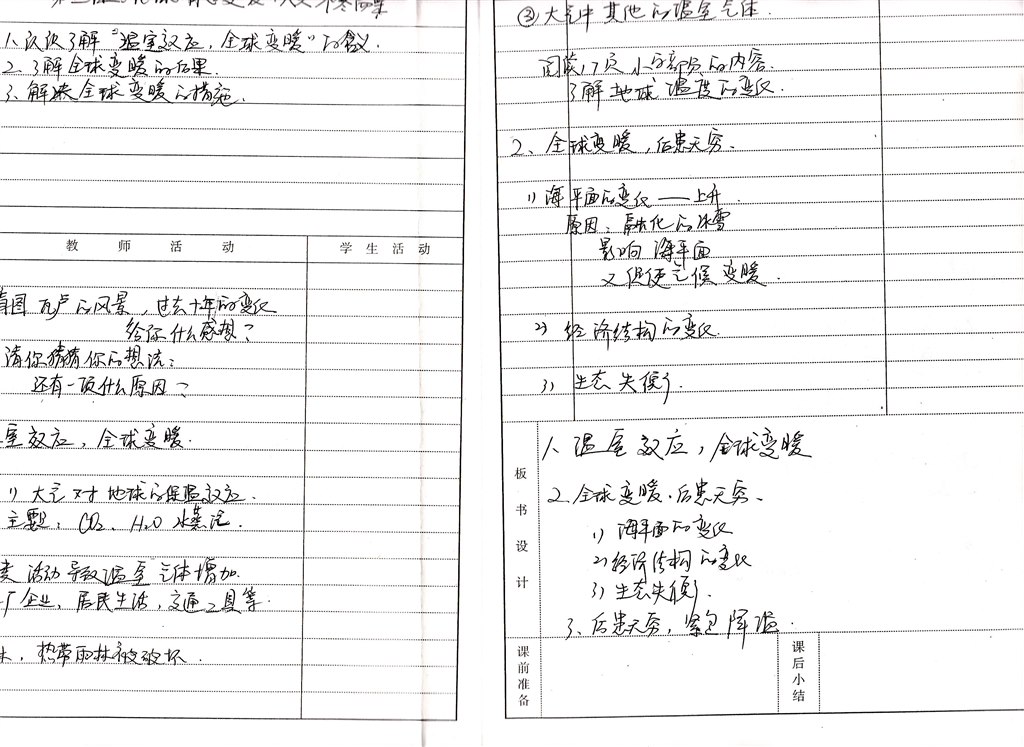 1、次次了解“温室效应，全球变暖”的含义.
2、了解全球变暖的后果.
3、解决全球变暖的措施.
教师活动
学生活动
看图 瓦卢的风景，过去十年的变化
给你什么感想？
请你猜猜你的想法：
还有一项什么原因？
室效应，全球变暖.
1）大气对地球的保温效应.
主要：CO2、H2O 水蒸汽.
类活动导致温室气体增加.
厂企业，居民生活，交通工具等.
木，热带雨林被破坏.
③大气中其他的温室气体.
阅读17页小字部分的内容.
了解地球温度的变化.
2、全球变暖，后患无穷.
1）海平面的变化——上升.
原因：融化的冰雪
影响 海平面
又促使气候变暖.
2）经济结构的变化.
3）生态失衡.
板书设计
1、温室效应，全球变暖
2、全球变暖，后患无穷.
1）海平面的变化
2）经济结构的变化
3）生态失衡.
3、后患无穷，降温.
课前准备
课后小结